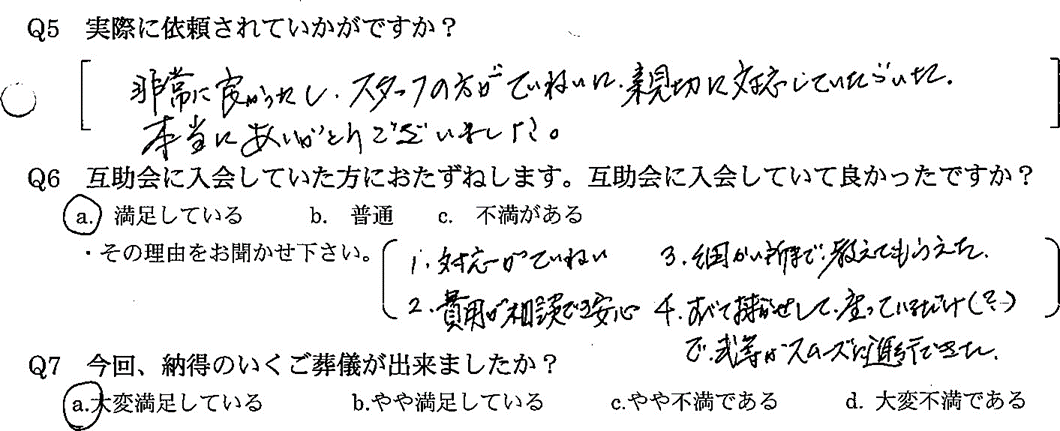 Q5 実際に依頼されていかがですか?
非常に良かったし、スタッフの方がていねいに、親切に対応していただいた。
本当にありがとうございました。
Q6 互助会に入会していた方におたずねします。互助会に入会していて良かったですか?
a. 満足している b. 普通 c. 不満がある
・その理由をお聞かせ下さい。
1. 対応がていねい 3. 細かい所まで教えてもらえた。
2. 費用が相談でき安心 4. すべて持かせして、座っているだけ(?)
で、式等がスムーズに進行できた。
Q7 今回、納得のいくご葬儀が出来ましたか?
a.大変満足している b.やや満足している c.やや不満である d. 大変不満である